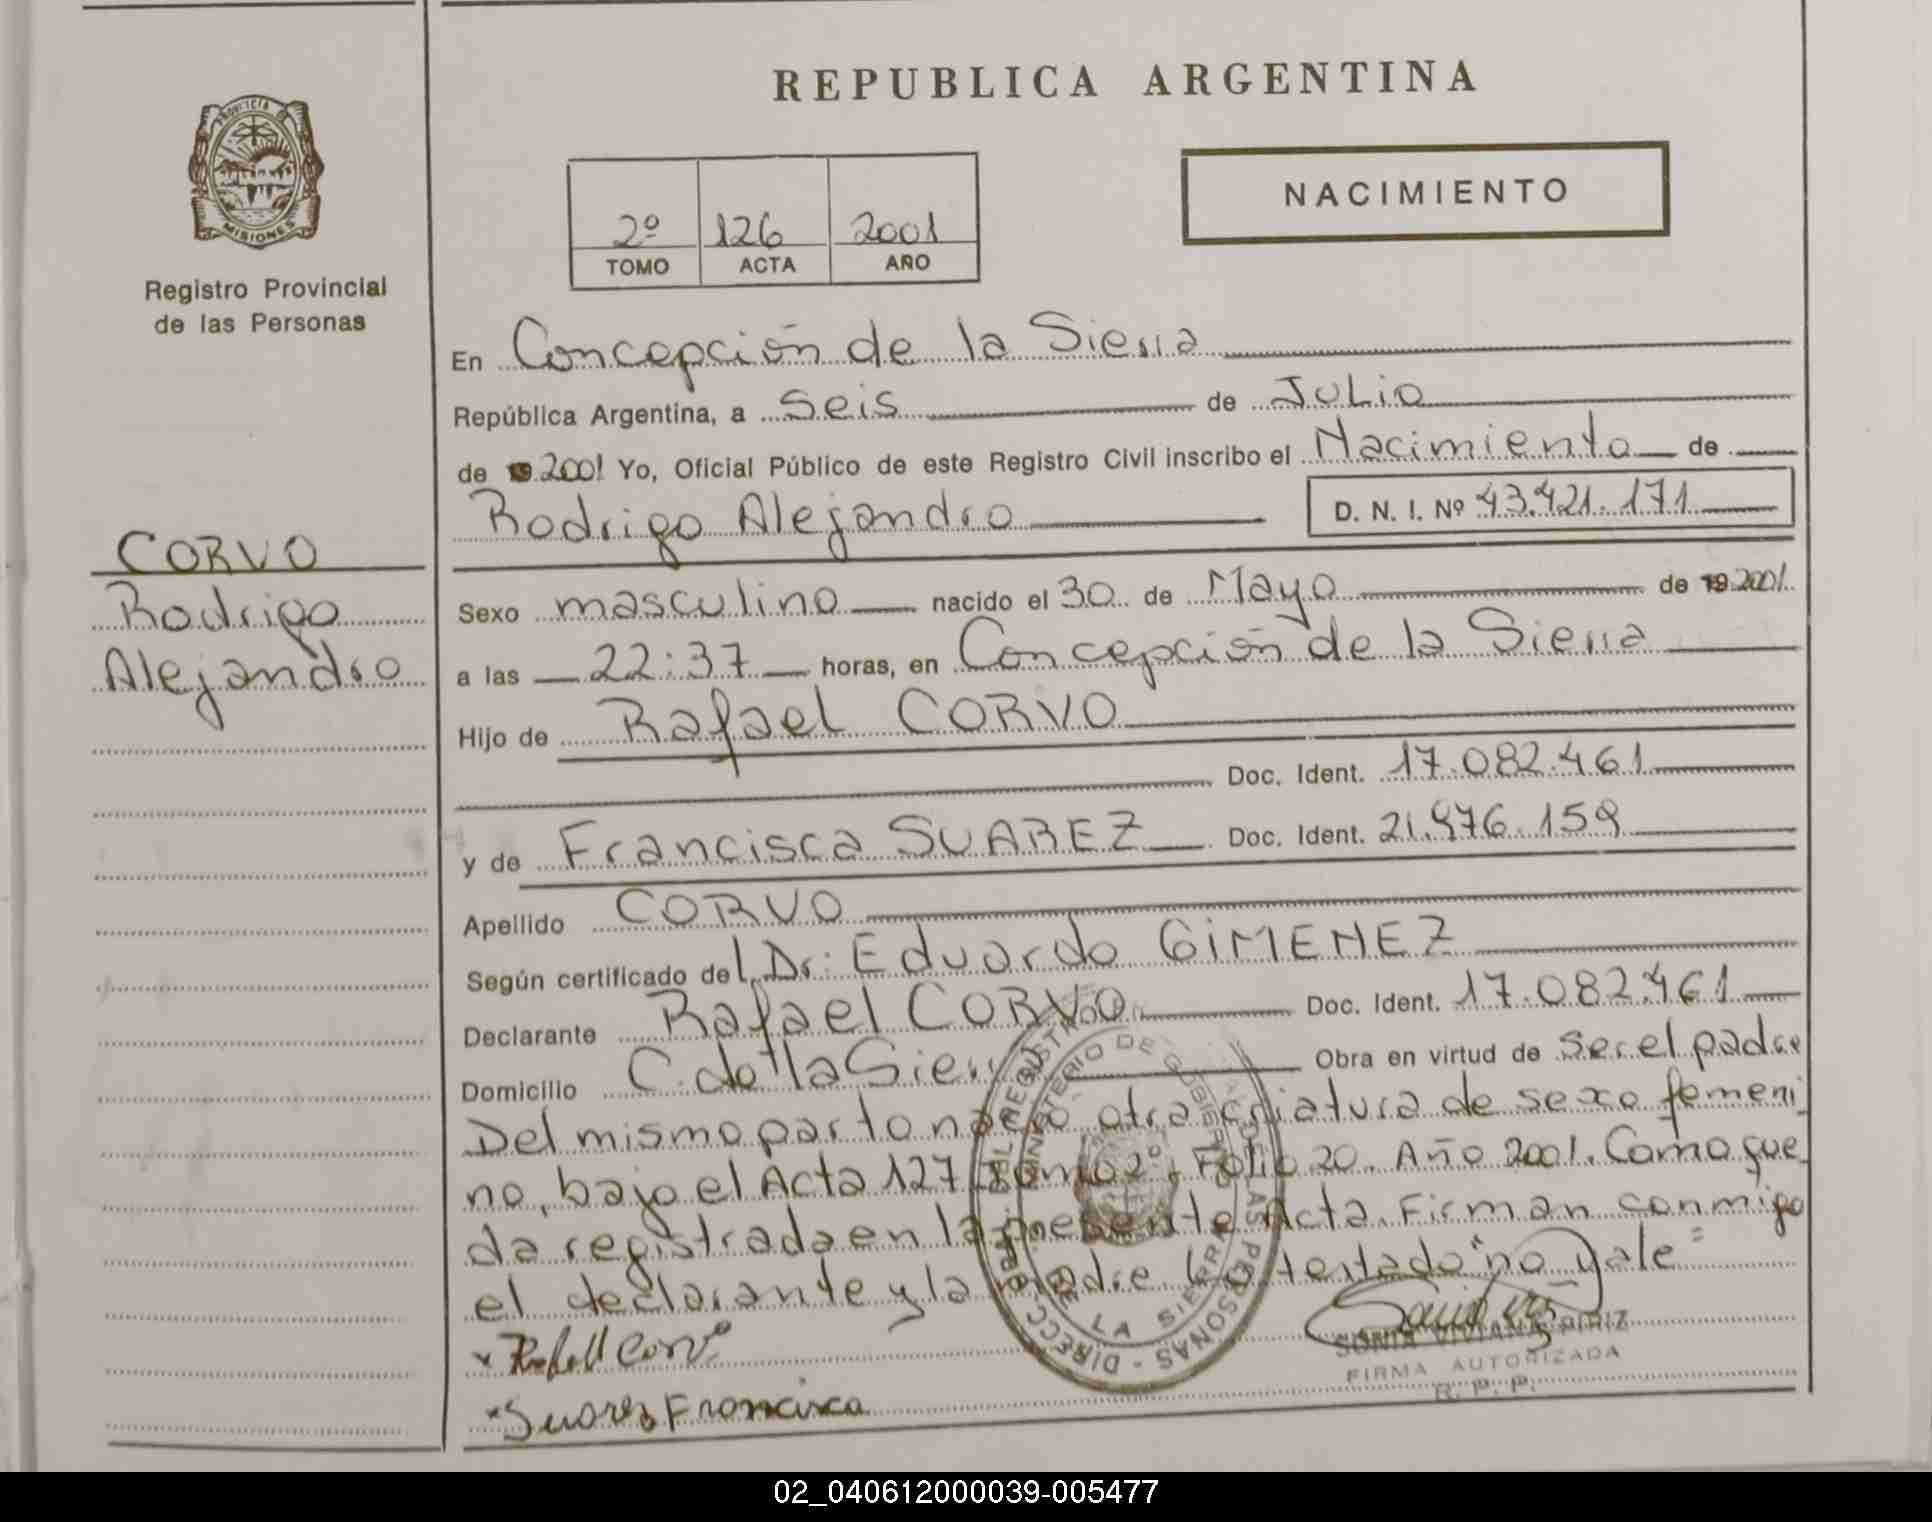 REPUBLICA ARGENTINA
PROVINCIA
MISIONES
Registro Provincial
de las Personas
NACIMIENTO
2º 126 2001
TOMO ACTA AÑO
En Concepción de la Sierra
República Argentina, a Seis de Julio
de 2001 Yo, Oficial Público de este Registro Civil inscribo el Nacimiento de
Rodrigo Alejandro D. N. I. Nº 43.421.171
CORVO
Rodrigo
Alejandro
Sexo masculino nacido el 30 de Mayo de 19 2001
a las 22:37 horas, en Concepción de la Sierra
Hijo de Rafael CORVO
Doc. Ident. 17.082.461
y de Francisca SUAREZ Doc. Ident. 21.976.159
Apellido CORVO
Según certificado del Dr: Eduardo GIMENEZ
Declarante Rafael CORVO Doc. Ident. 17.082.461
Domicilio C. de la Sierra Obra en virtud de ser el padre
Del mismo parto nació otra criatura de sexo femeni
no, bajo el Acta 127 Tomo 2º, Folio 20. Año 2001. Como que
da registrada en la presente Acta. Firman conmigo
el declarante y la madre Lo testado "no vale"
Rafael Corvo
Suarez Francisca
SONIA VIVIANA PIRIZ
FIRMA AUTORIZADA
R. P. P.
MINISTERIO DE GOBIERNO
DE LA SIERRA
DIRECC
REGISTRO
LAS PERSONAS
02_040612000039-005477